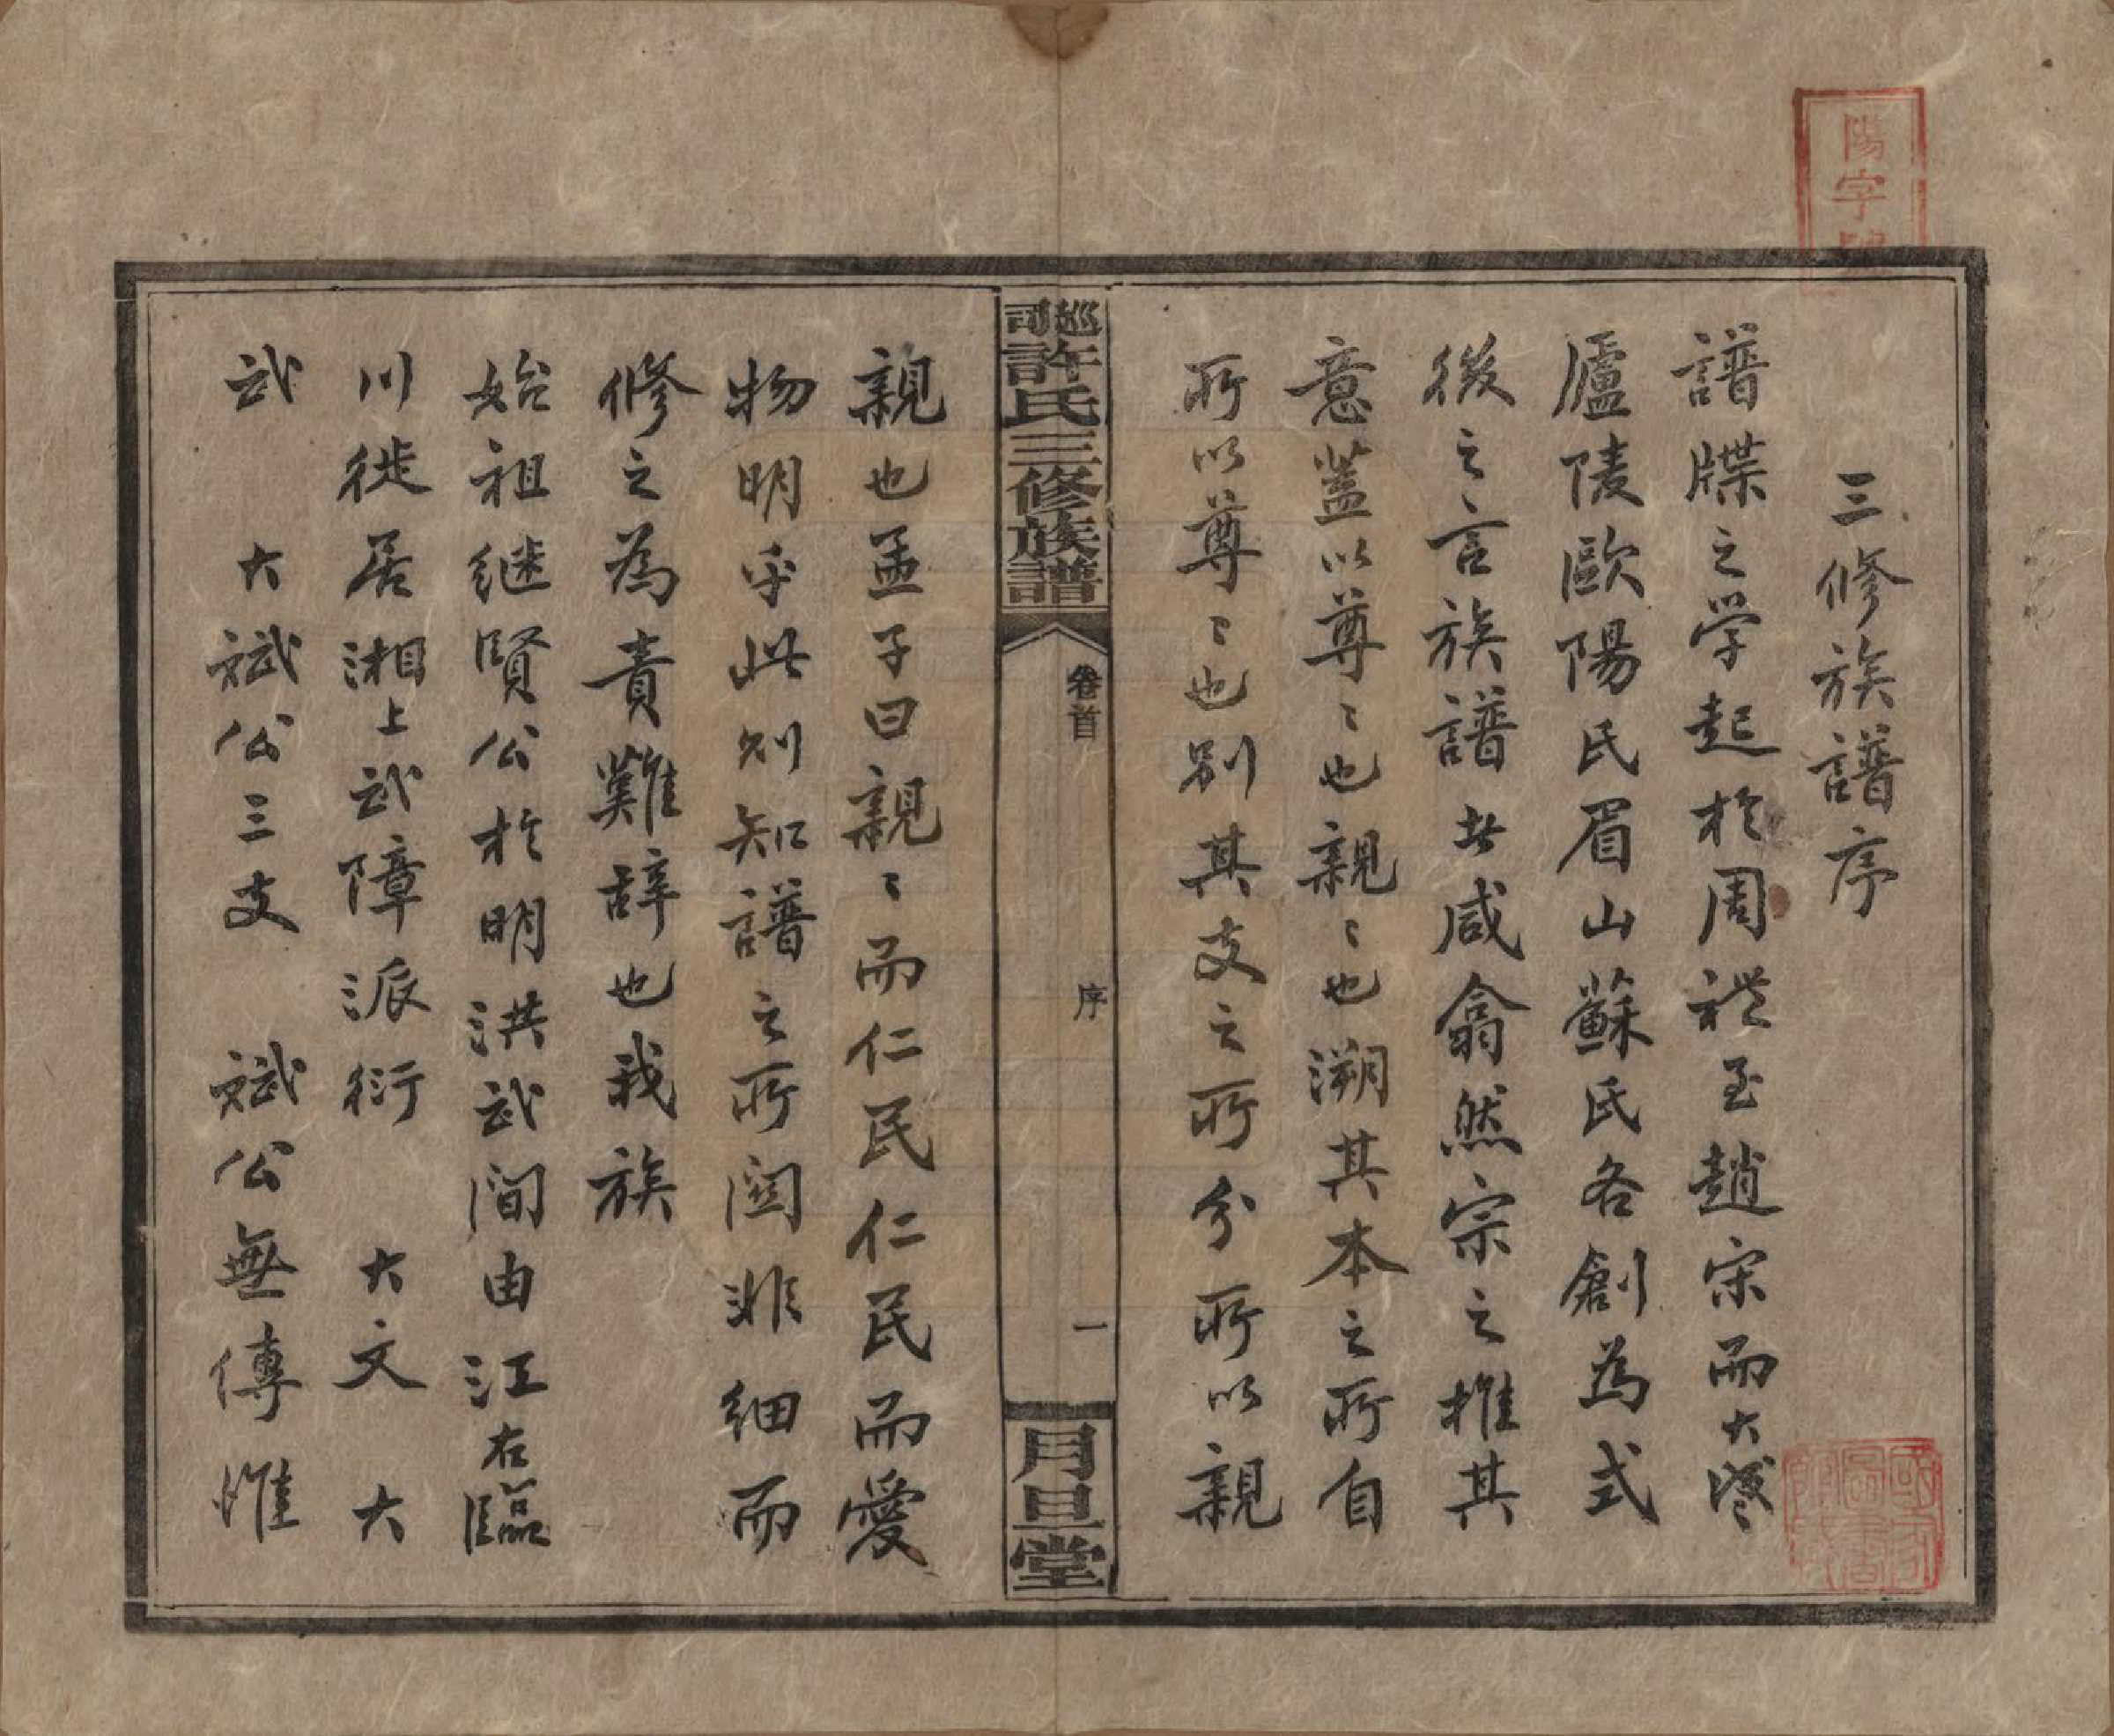 三修族譜序
譜牒之学起於周禮至趙宋而大盛
廬陵歐陽氏眉山蘇氏各創為式
後之言族譜者咸翕然宗之推其
意蓋以尊〻也親〻也溯其本之所自
所以尊〻也别其支之所分所以親
巡司許氏三修族譜
卷首
序
一
月旦堂
親也孟子曰親〻而仁民仁民而愛
物明乎此則知譜之所関非細而
修之為責難辞也我族
始祖継賢公於明洪武間由江右臨
川徙居湘上武障派衍 大文 大
武 大斌公三支 斌公無傳惟
陽字號